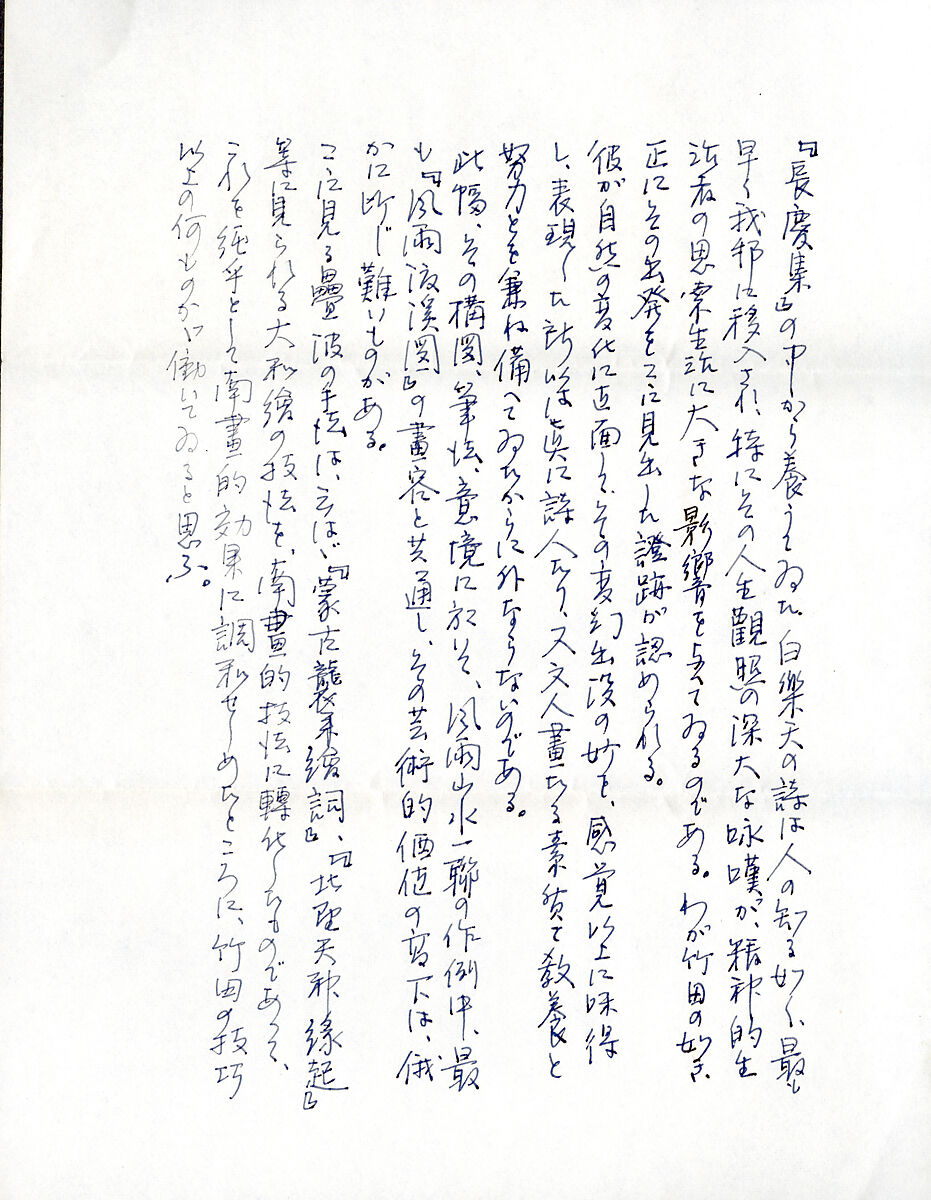 『長慶集』の中から養うてゐた。白樂天の詩は人の知る如く、最も
早く我邦に移入され、特にその人生觀照の深大な咏嘆が、精神的生
活者の思索生活に大きな影響を与へてゐるのである。わが竹田の如き、
正にその出発をこゝに見出した證跡が認められる。
彼が自然の変化に直面して、その変幻出没の妙を、感覚以上に味得
し、表現した所以は、真に詩人たり、又文人畫たる素質と教養と
努力とを兼ね備へてゐたからに外ならないのである。
此幅、その構図、筆法、意境に於いて、風雨山水一聯の作例中、最
も『風雨渡溪図』の畫容と共通し、その芸術的価値の高下は、俄
かに断じ難いものがある。
こゝに見る疊波の手法は、云はゞ『蒙古襲来繪詞』、『北野天神縁起』
等に見られる大和繪の技法を、南畫的技法に轉化したものであつて、
これを純乎として南畫的効果に調和せしめたところに、竹田の技巧
以上の何ものかゞ働いてゐると思ふ。